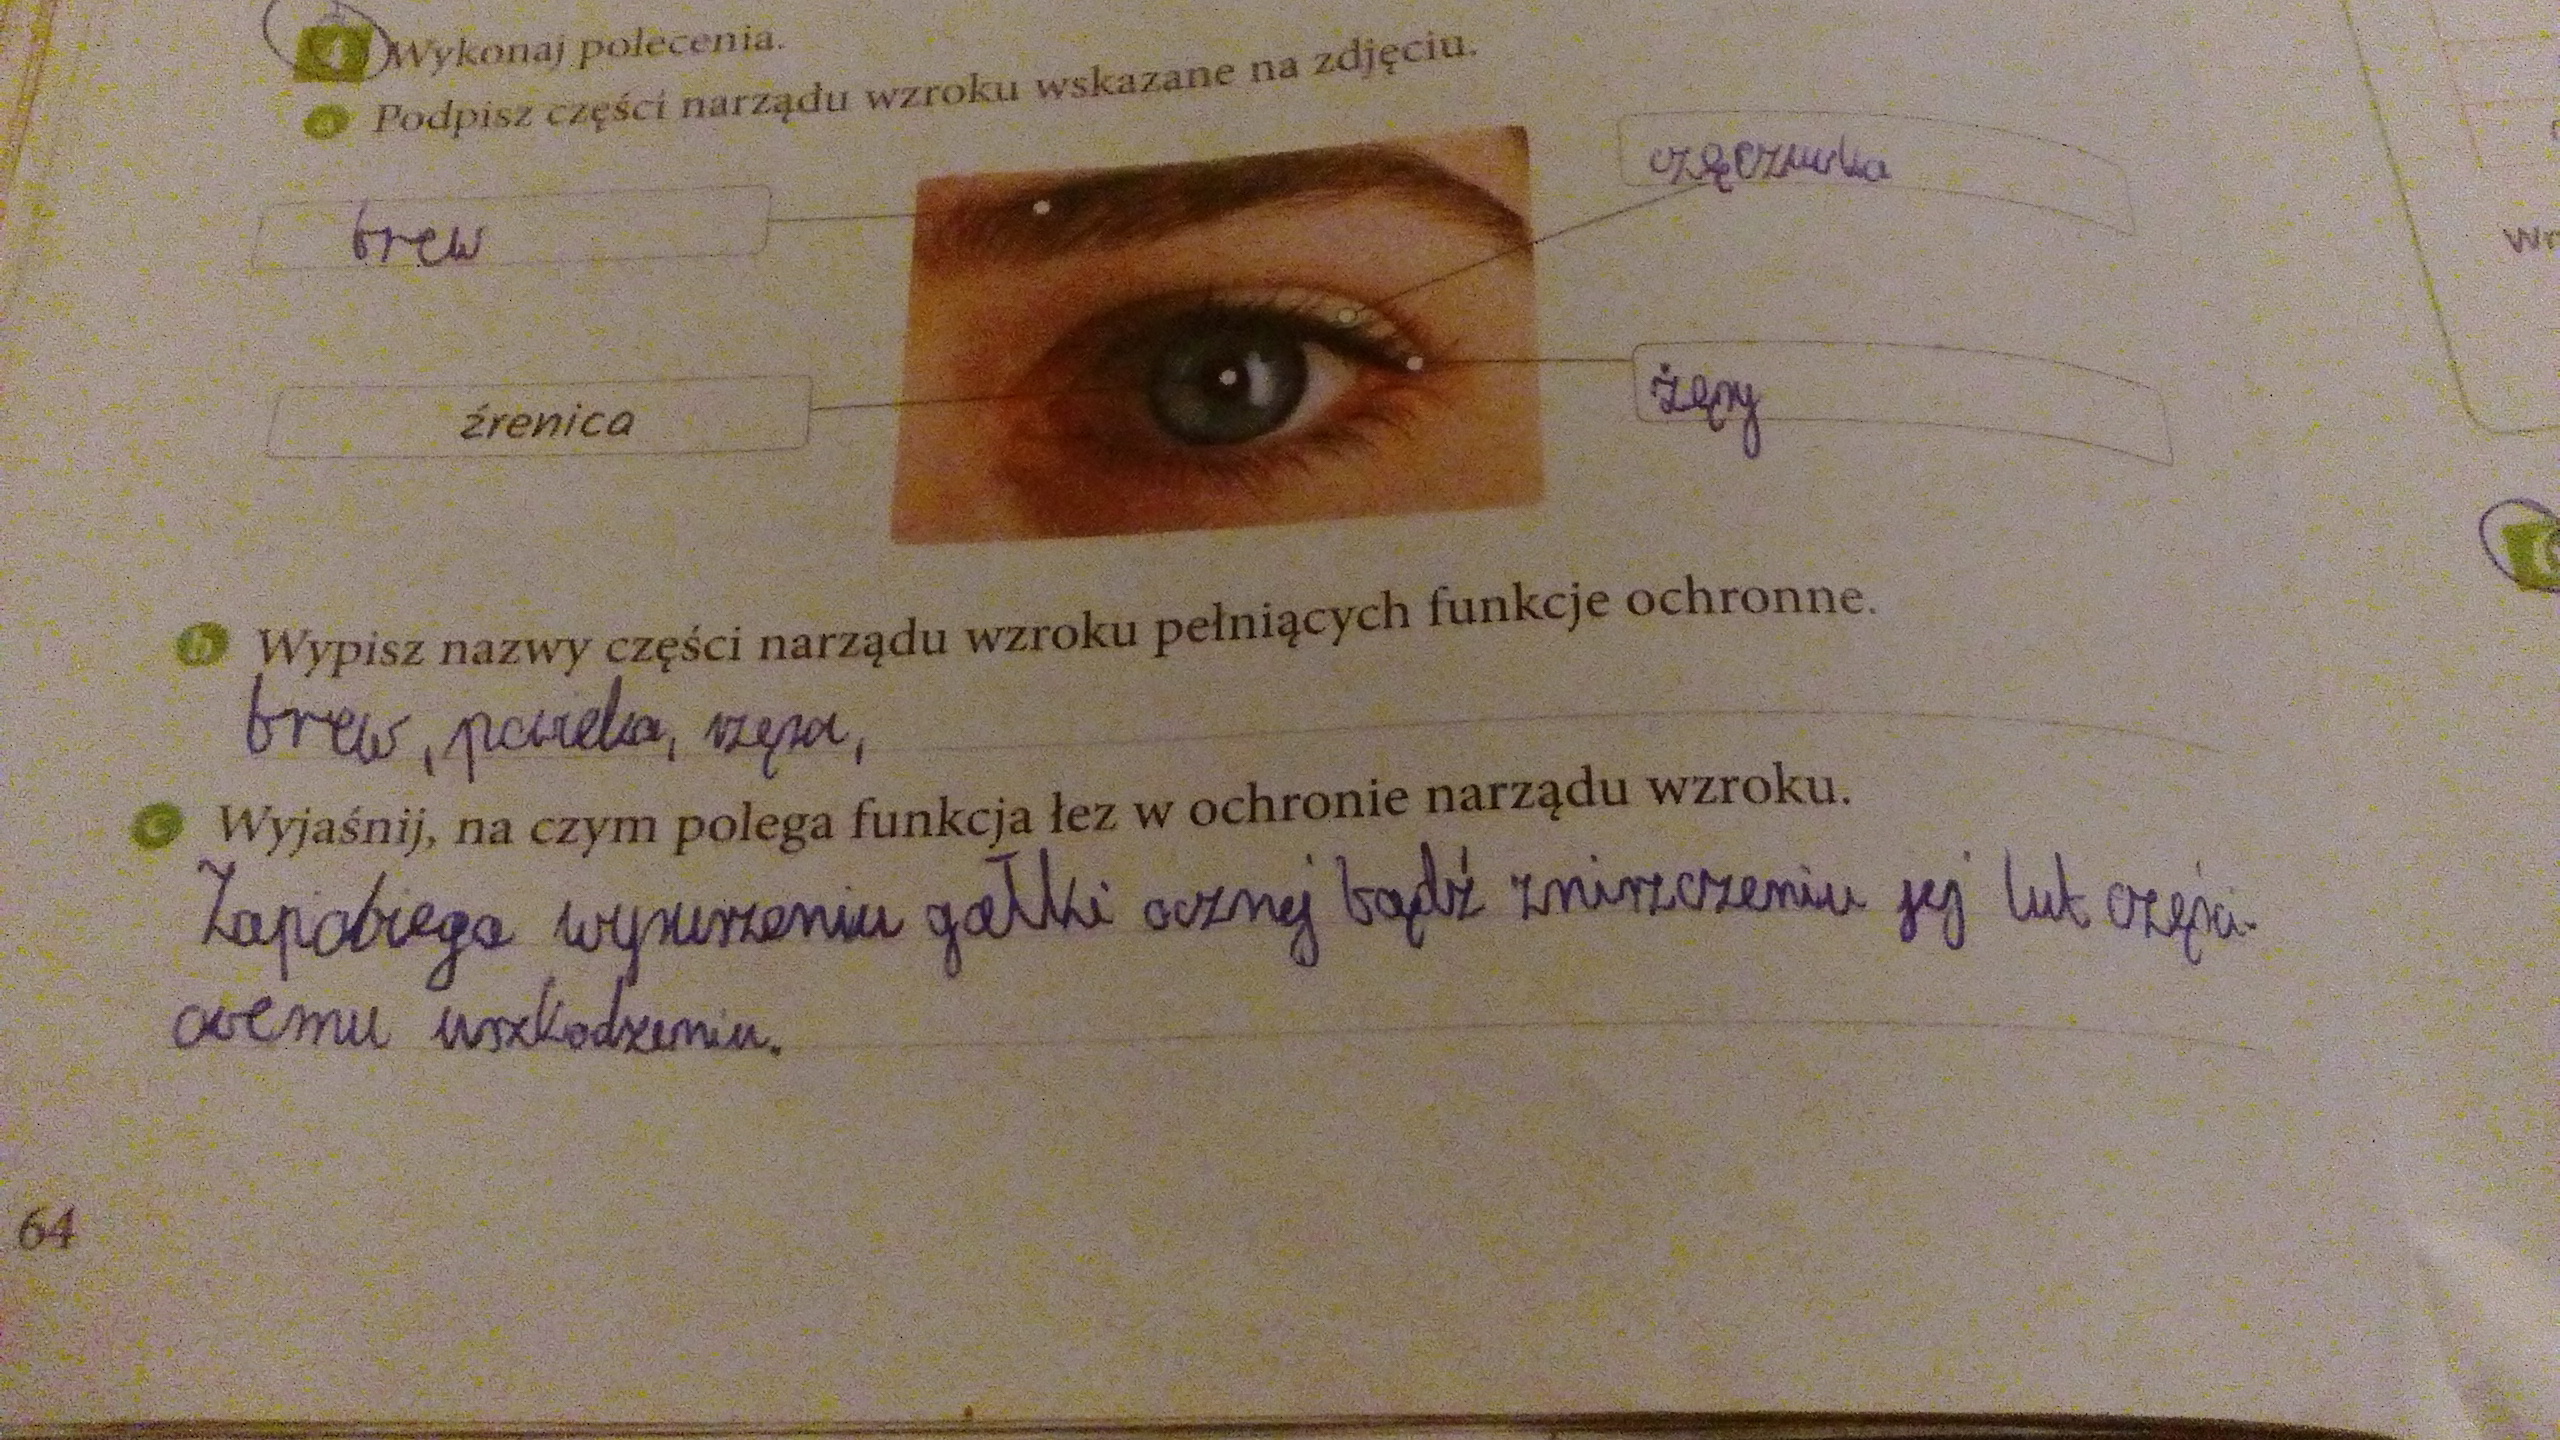 4 Wykonaj polecenia.
a Podpisz części narządu wzroku wskazane na zdjęciu.
brew
żęsy
źrenica
b Wypisz nazwy części narządu wzroku pełniących funkcje ochronne.
brew, powieka, rzęsa,
c Wyjaśnij, na czym polega funkcja łez w ochronie narządu wzroku.
Zapobiega wysuszeniu gałki ocznej bądź zniszczeniu jej lub części-
owemu uszkodzeniu.
64